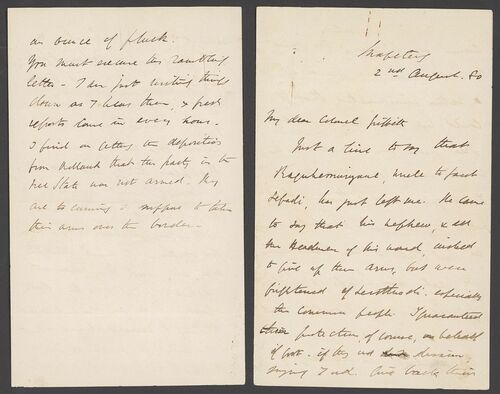 an ounce of pluck.
You must excuse this rambling
letter - I am just writing things
down as I hear them, & fresh
reports come in every hour.
I find on getting the deposition
from that the party in the
Free State was not armed. They
are too cunning I suppose to take
their arms over the border -
Mafeteng
2nd August. 80
My dear Colonel Griffith
Just a line to say that
uncle to
has just left me. He came
to say that his nephew, & all
the Headmen of his ward, wished
to give up their arms, but were
frightened of Lerothodi. especially
the common people I guaranteed
protection, of course, on behalf
of Govt. if they
saying I wd. give back their